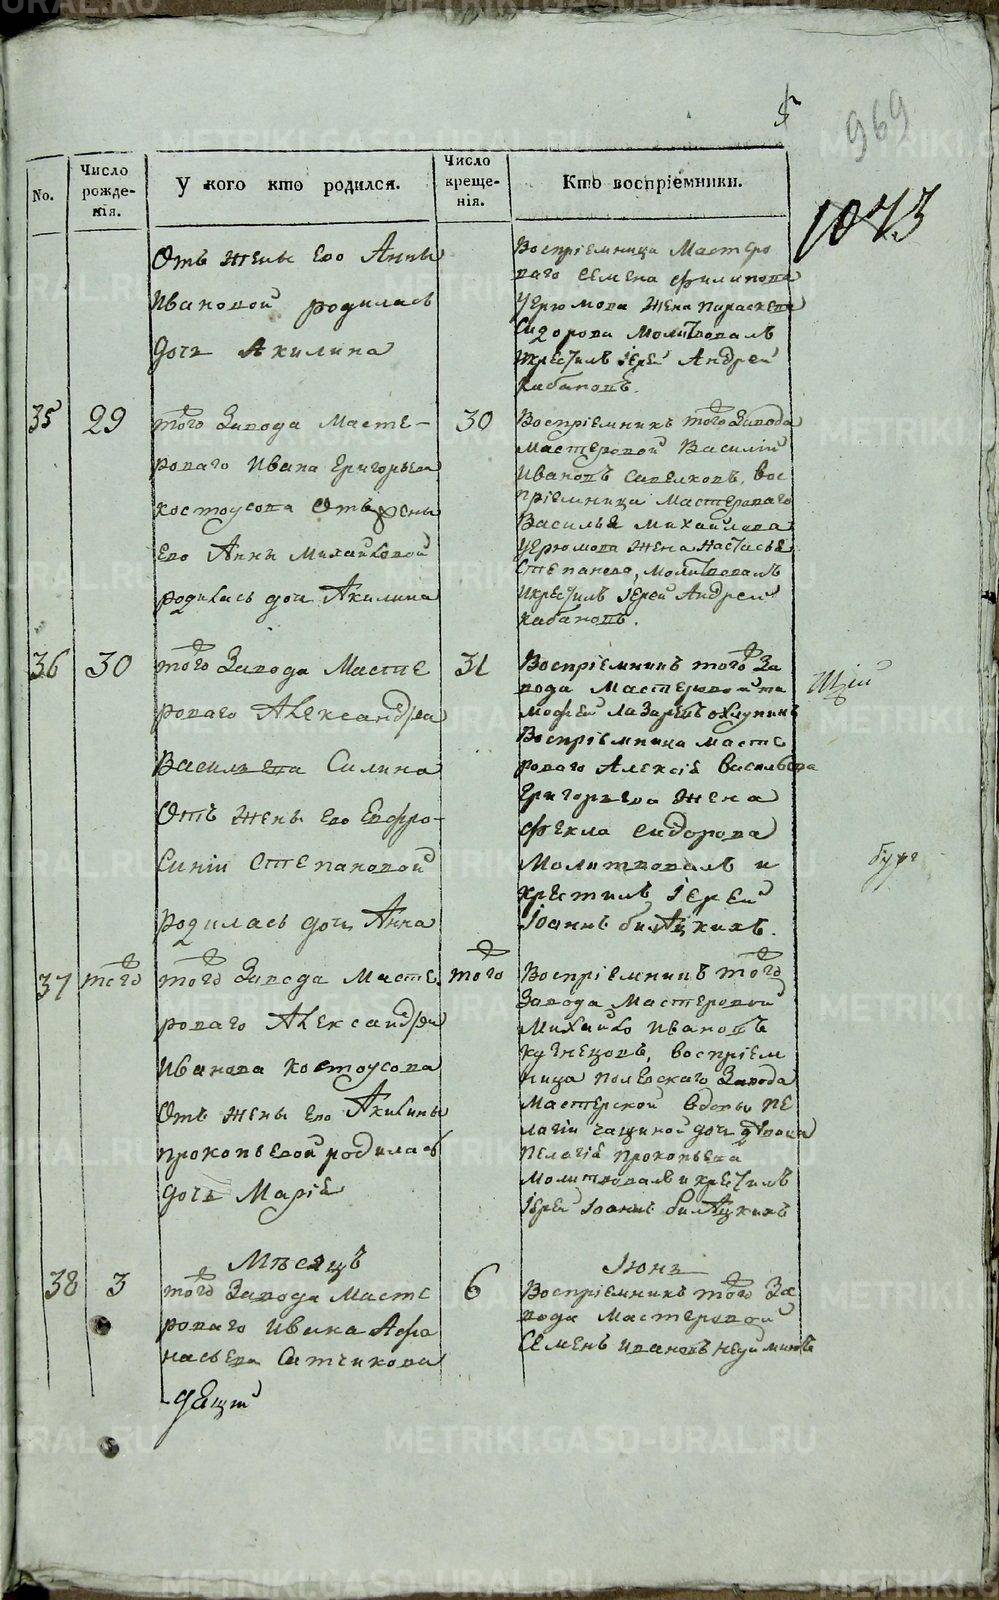 5
969
1073
No.
Число рожде-
нія.
У кого кто родился.
Число креще-
нія.
Кто воспріемники.
Отъ жены Его Анны
Ивановой родилась
дочь Акилина
Воспріемница Мастеро
ваго Семена Филипова
Угрюмова жена Параскева
Сидорова Молитвовалъ
икрестилъ іерей Андрей
Кабановъ.
35
29
того Завода Масте-
роваго Ивана Григорьева
Костоусова отъ жены
Его Анны Михайловой
родилась дочь Акилина
30
Воспріемникъ того Завода
Мастеровой Василій
Ивановъ Савелковъ, вос
пріемница Мастероваго
Василья Михайлова
Угрюмова жена Настасья
Степанова, молитвовалъ
икрестилъ іерей Андрей
Кабановъ.
36
30
того Завода Масте
роваго Александра
Васильева Силина
Отъ жены Его Евфро-
Синіи Степановой
родилась дочь Анна
31
Воспріемникъ того За
вода Мастеровой ти
мофей Лазаревъ охлупинъ
Воспріемница масте
роваго Алексія Васильева
Григорьева жена
Фекла Сидорова
Молитвовалъ и
крестилъ Іерей
Іоаннъ
37
того
того Завода Масте
роваго Александра
Иванова Костоусова
Отъ жены Его Акилины
прокопьевой родилась
дочь Марія
того
Воспріемникъ того
Завода Мастеровой
Михайло Ивановъ
Кузнецовъ, воспріем
ница полевскаго Завода
Мастерской вдовы Пе
лагіи чащиной дочь девица
Пелагія Прокопьева
Молитвовалъ и крестилъ
Іерей Іоаннъ
Мѣсяцъ
Іюнь
38
3
того Завода Масте
роваго Ивана Афо
насьева Ситчикова
6
Воспріемникъ того За
вода Мастеровой
Семенъ Ивановъ